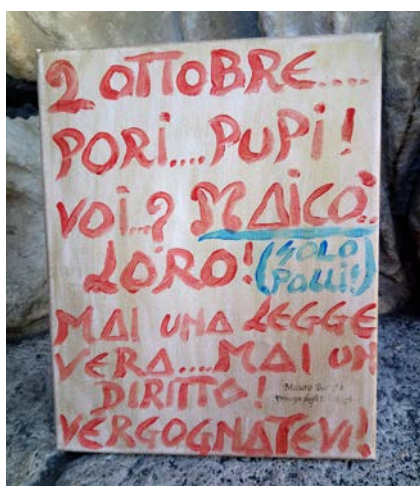 2 OTTOBRE....
PORI....PUPI!
VOI..? MAICO'..
LORO! (SOLO
POLLI!)
MAI UNA LEGGE
VERA....MAI UN
DIRITTO!
Mauro
VERGOGNATEVI!